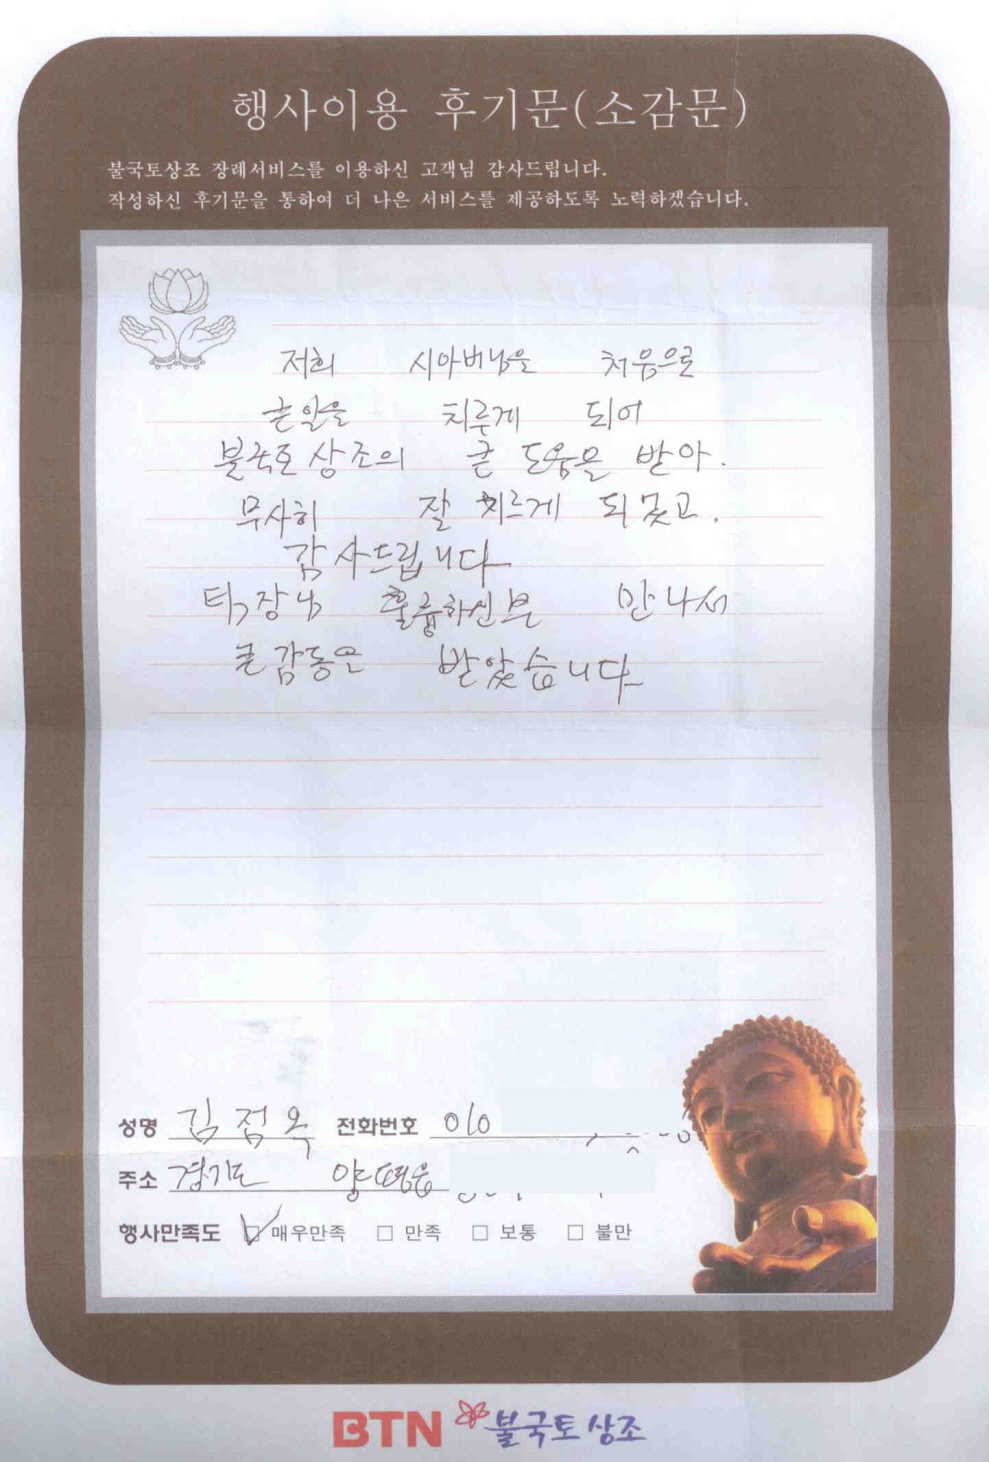 행사이용 후기문(소감문)
불국토상조 장례서비스를 이용하신 고객님 감사드립니다.
작성하신 후기문을 통하여 더 나은 서비스를 제공하도록 노력하겠습니다.
저희 시아버님을 처음으로
큰일을 치루게 되어
불국토 상조의 큰 도움을 받아.
무사히 잘 치르게 되 고.
감사드립니다
장님 훌륭하신분 만나서
큰감동은 받았습니다
성명 김점옥 전화번호 010
주소 경기도 양평읍
행사만족도 매우만족 만족 보통 불만
BTN 불국토 상조